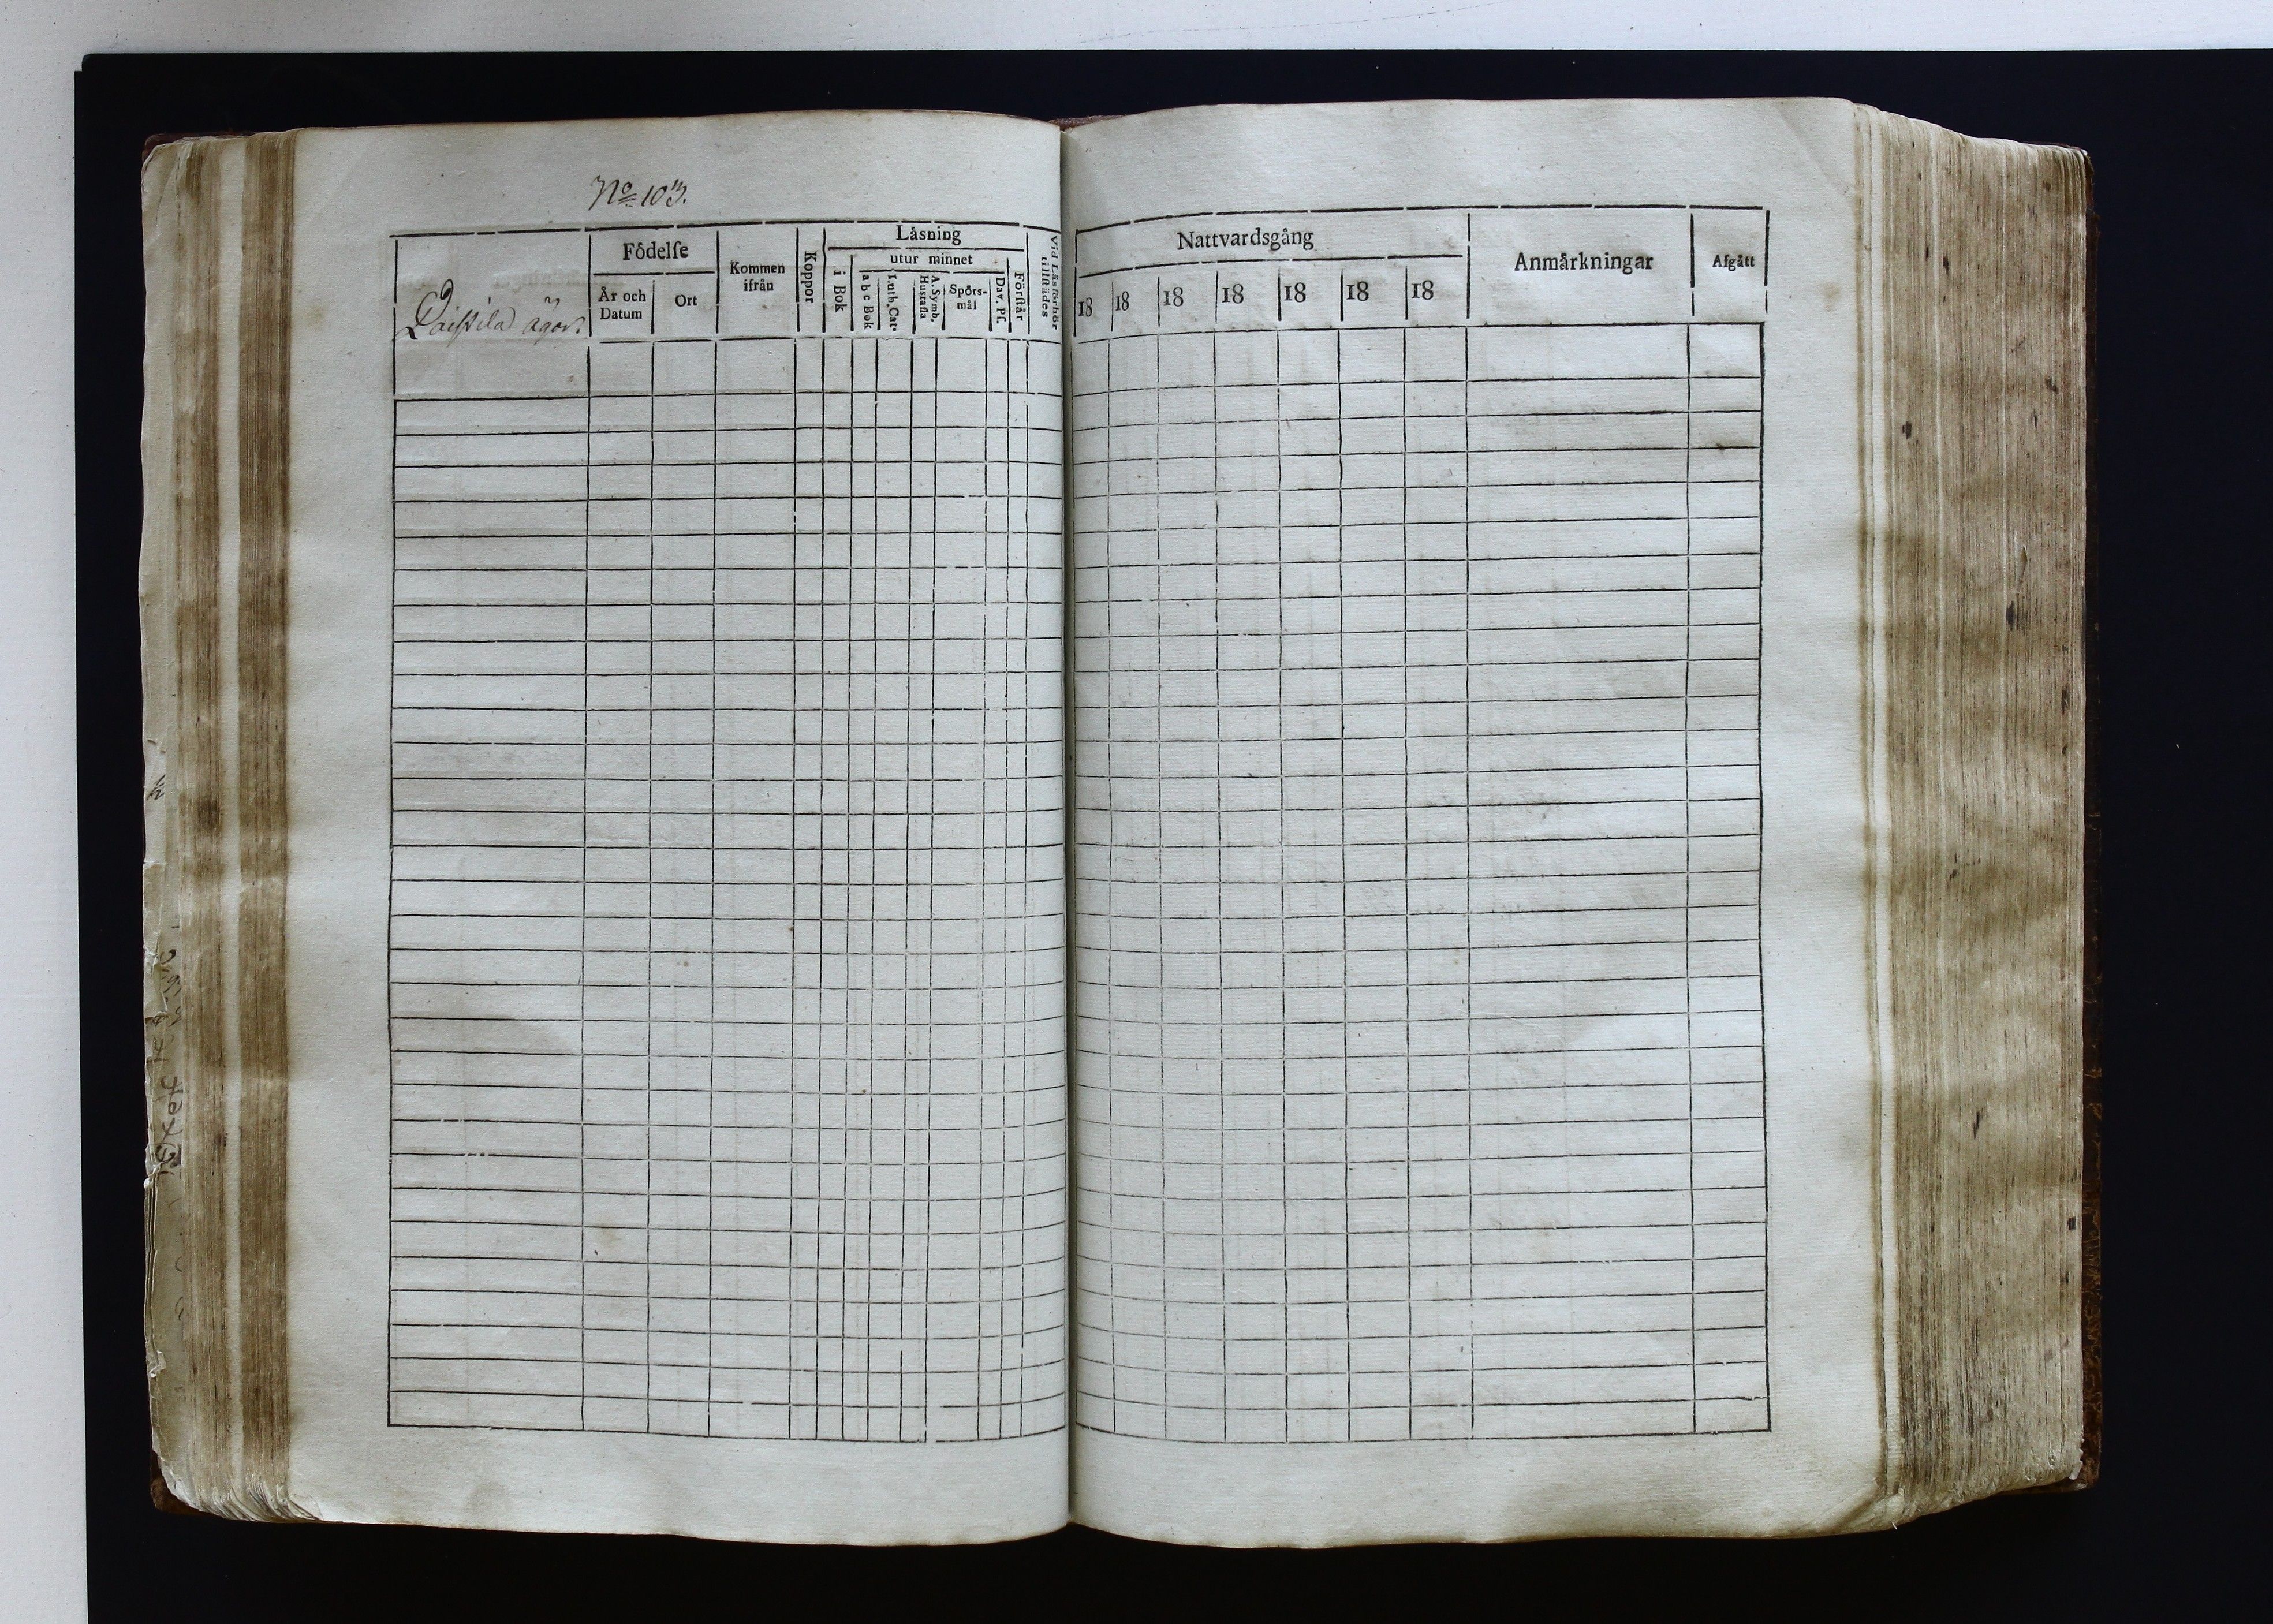 No 103.
Födelſe
År och Datum
Ort
Kommen ifrån
Koppor
Låsning
utur minnet
i Bok
a b c Bok
Luth. Cat.
A. Symb. Huſtafla
Spörs-mål
Dav. Pſ.
Förſtår
Vid Läsförhör tillſtädes
ägor.
Nattvardsgång
18 18 18 18 18 18 18
Anmärkningar
Afgått